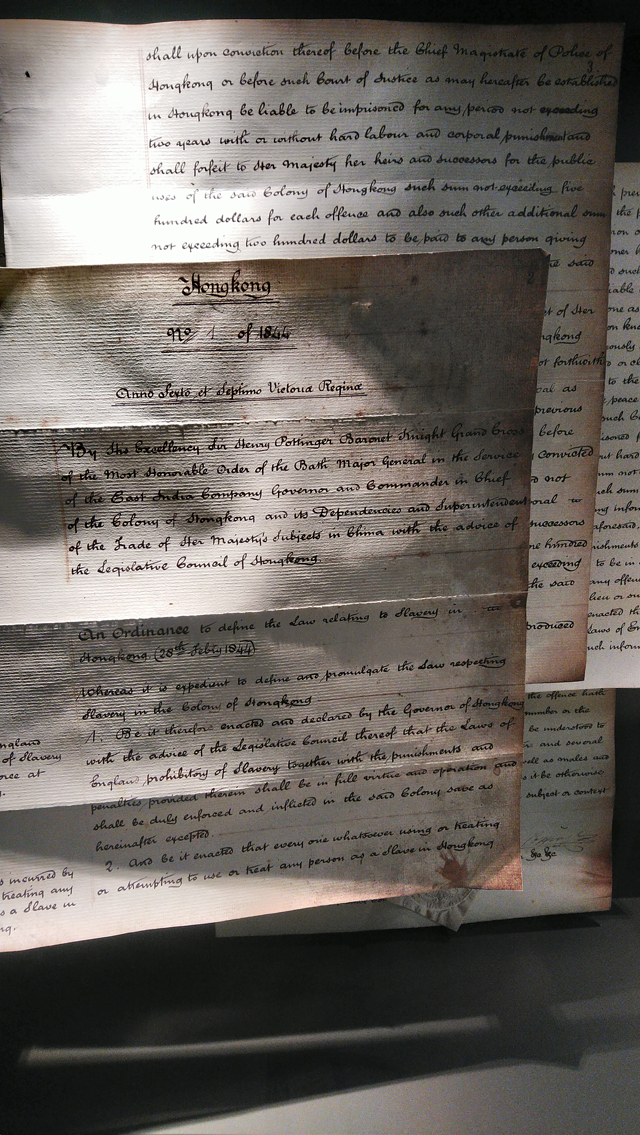 shall upon conviction thereof before the Chief Magistrate of Police of
Hongkong or before such Court of Justice as may hereafter be established
in Hongkong be liable to be imprisoned for any period not exceeding
two years with or without hard labour and corporal punishment and
shall forfeit to Her Majesty her heirs and successors for the public
uses of the said Colony of Hongkong such sum not exceeding five
hundred dollars for each offence and also such other additional sum
not exceeding two hundred dollars to be paid to any person giving
the said
Hongkong
No 1 of 1844
Anno Sexto et Septimo Victoria Reginæ
By His Excellency Sir Henry Pottinger Baronet Knight Grand Cross
of the Most Honorable Order of the Bath Major General in the Service
of the East India Company Governor and Commander in Chief
of the Colony of Hongkong and its Dependencies and Superintendent
of the Trade of Her Majesty's Subjects in China with the advice of
the Legislative Council of Hongkong.
An Ordinance to define the Law relating to Slavery in
Hongkong (28th Febly 1844)
Whereas it is expedient to define and promulgate the Law respecting
Slavery in the Colony of Hongkong
1. Be it therefore enacted and declared by the Governor of Hongkong
with the advice of the Legislative Council thereof that the Laws of
England prohibitory of Slavery together with the punishments and
penalties provided therein shall be in full virtue and operation and
shall be duly enforced and inflicted in the said Colony save as
hereinafter excepted.
2. And be it enacted that every one whatsoever using or treating
or attempting to use or treat any person as a Slave in Hongkong
of Slavery
at
incurred by
treating any
as a Slave in
of Her
as
previous
before
convicted
not
successors
hundred
exceeding
the said
produced
the offence hath
number or the
be understood to
and several
well as males and
it be otherwise
subject or context
&c &c